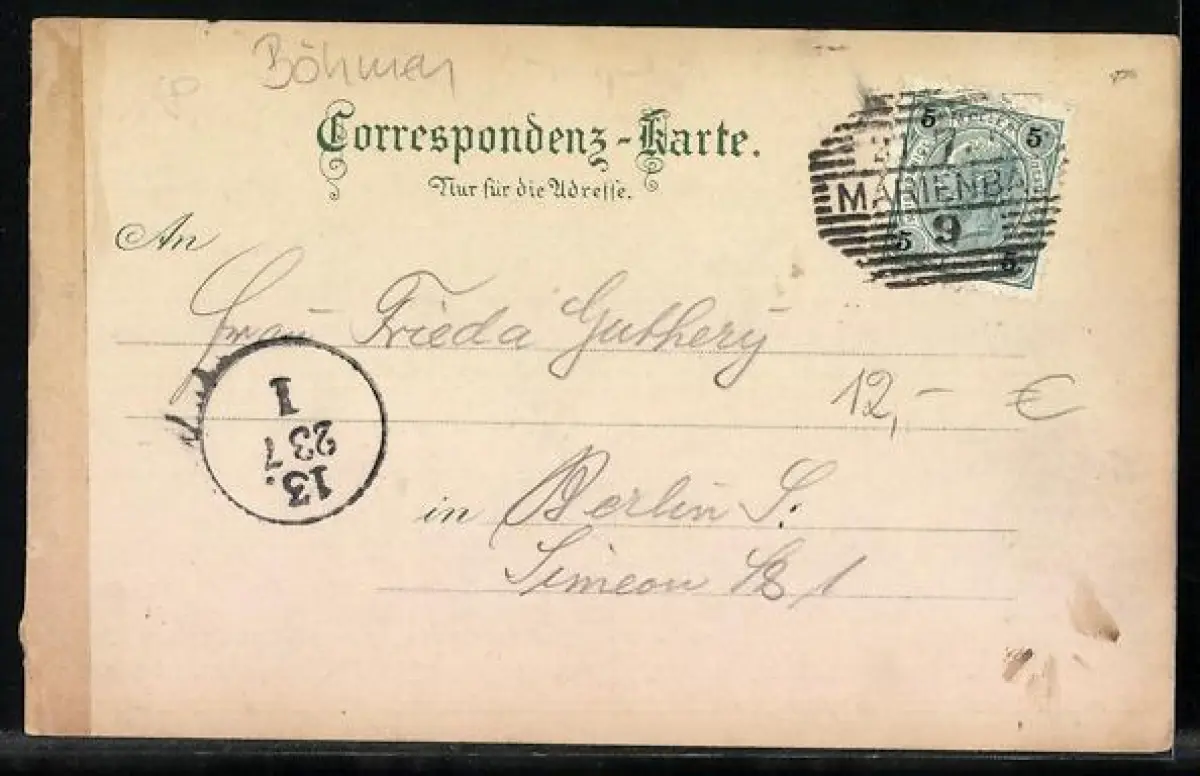 Böhmen
Correspondenz-Karte.
Nur für die Adresse.
5 HELLER 5
MARIENBA
9
5 5
An
Frau Frieda Guthery
12,- €
1
23 7
13.
in Berlin S.
Simeon Str 1